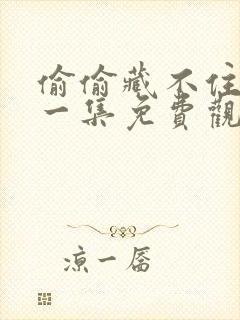 偷偷藏不住
一集免費觀
涼一孱